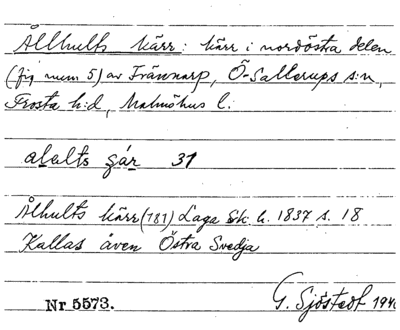 Ållhults kärr: kärr i nordöstra delen
(fig num 5) av Trännarp, Ö-Sallerups s:n,
Frosta h:d, Malmöhus l.
alalts gár 31
Ålhults kärr (781) Laga Sk. h. 1837 s. 18
Kallas även Östra Svedja
Nr 5573. G. Sjöstedt 194